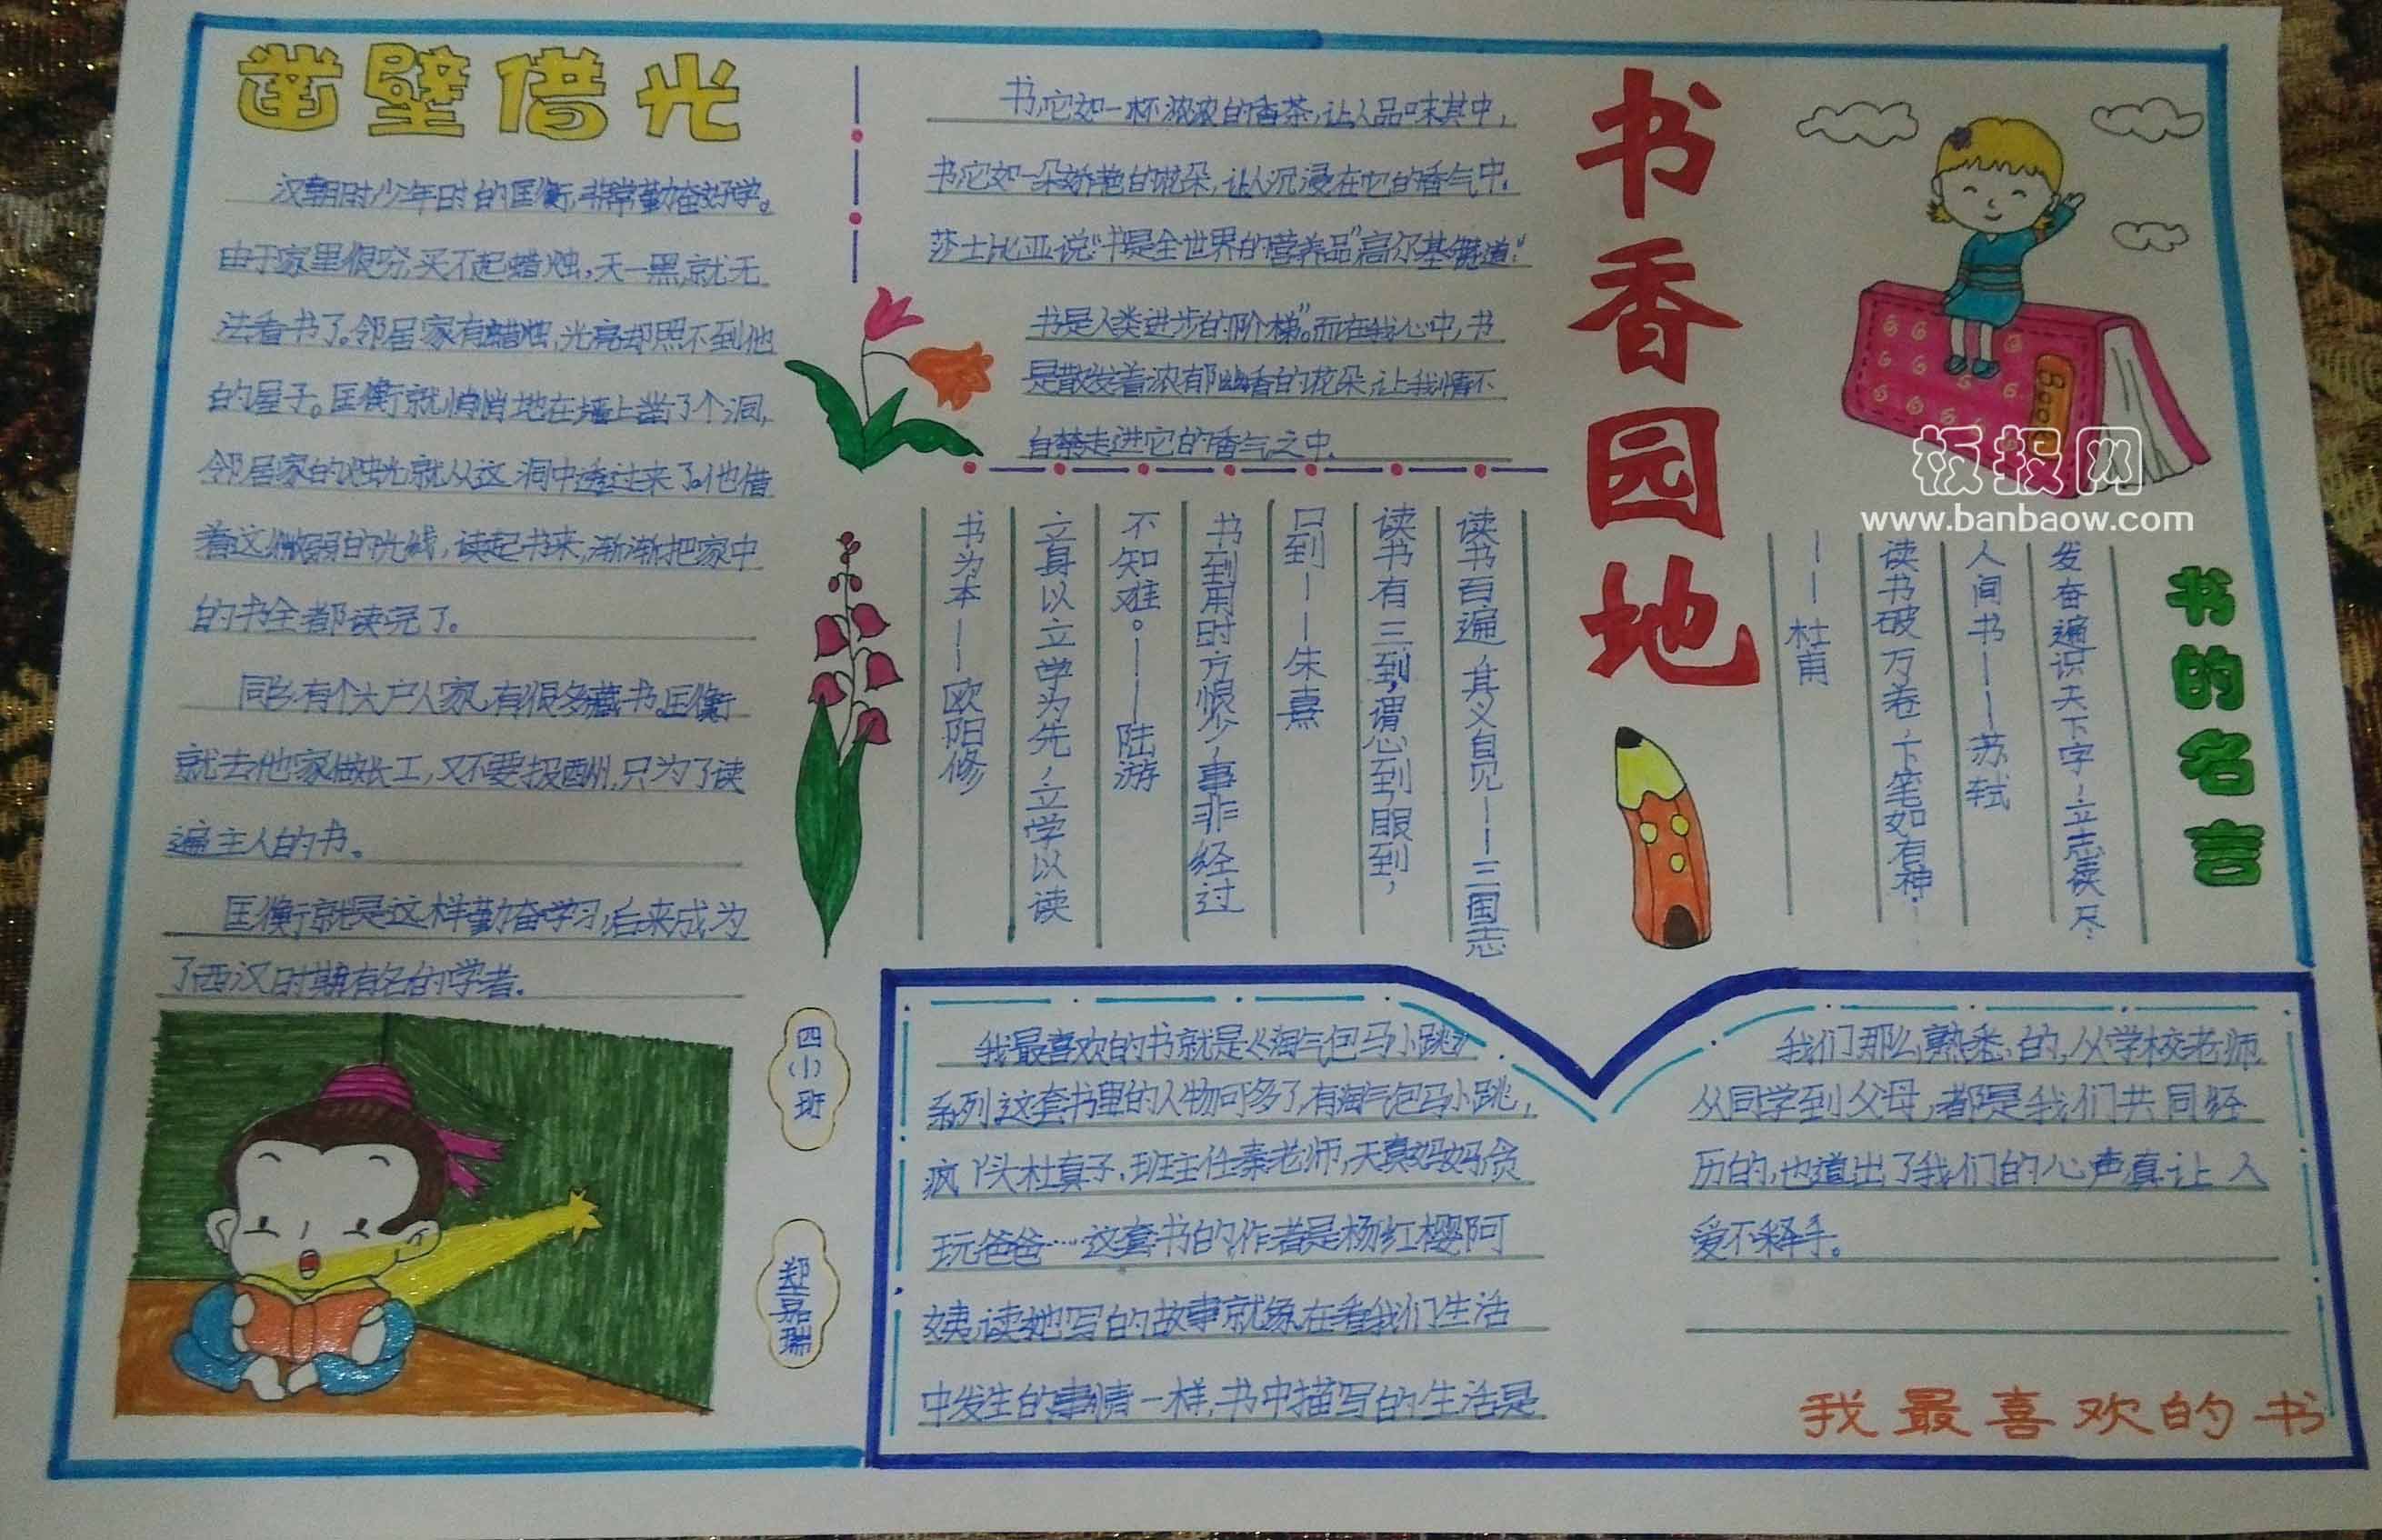 凿壁借光
汉朝时少年时的匡衡,非常勤奋好学。
由于家里很穷,买不起蜡烛,天一黑,就无
法看书了。邻居家有蜡烛,光亮却照不到他
的屋子。匡衡就悄悄地在墙上凿了个洞,
邻居家的烛光就从这洞中透过来了。他借
着这微弱的光线,读起书来,渐渐把家中
的书全都读完了。
同乡有个大户人家,有很多藏书。匡衡
就去他家做长工,又不要报酬,只为了读
遍主人的书。
匡衡就是这样勤奋学习,后来成为
了西汉时期有名的学者.
四(1)班
郑嘉瑞
书,它如一杯浓浓的香茶,让人品味其中,
书,它如一朵娇艳的花朵,让人沉浸在它的香气中.
莎士比亚说:“书是全世界的营养品”高尔基
书是人类进步的阶梯”。而在我心中,书
是散发着浓郁幽香的花朵,让我情不
自禁走进它的香气之中.
书香园地
Book
板报网
www.banbaow.com
书的名言
发奋遍识天下字,立志读尽
人间书——苏轼
读书破万卷,下笔如有神.
——杜甫
读书百遍,其义自见——三国志
读书有三到,谓心到,眼到,
口到——朱熹
书到用时方恨少,事非经过
不知难。——陆游
立身以立学为先,立学以读
书为本——欧阳修
我最喜欢的书就是《淘气包马小跳》
系列.这套书里的人物可多了,有淘气包马小跳,
疯丫头杜真子,班主任秦老师,天真妈妈,贪
玩爸爸……这套书的作者是杨红樱阿
姨,读她写的故事就像在看我们生活
中发生的事情一样,书中描写的生活是
我们那么熟悉的,从学校老师
从同学到父母,都是我们共同经
历的,也道出了我们的心声真让人
爱不释手。
我最喜欢的书